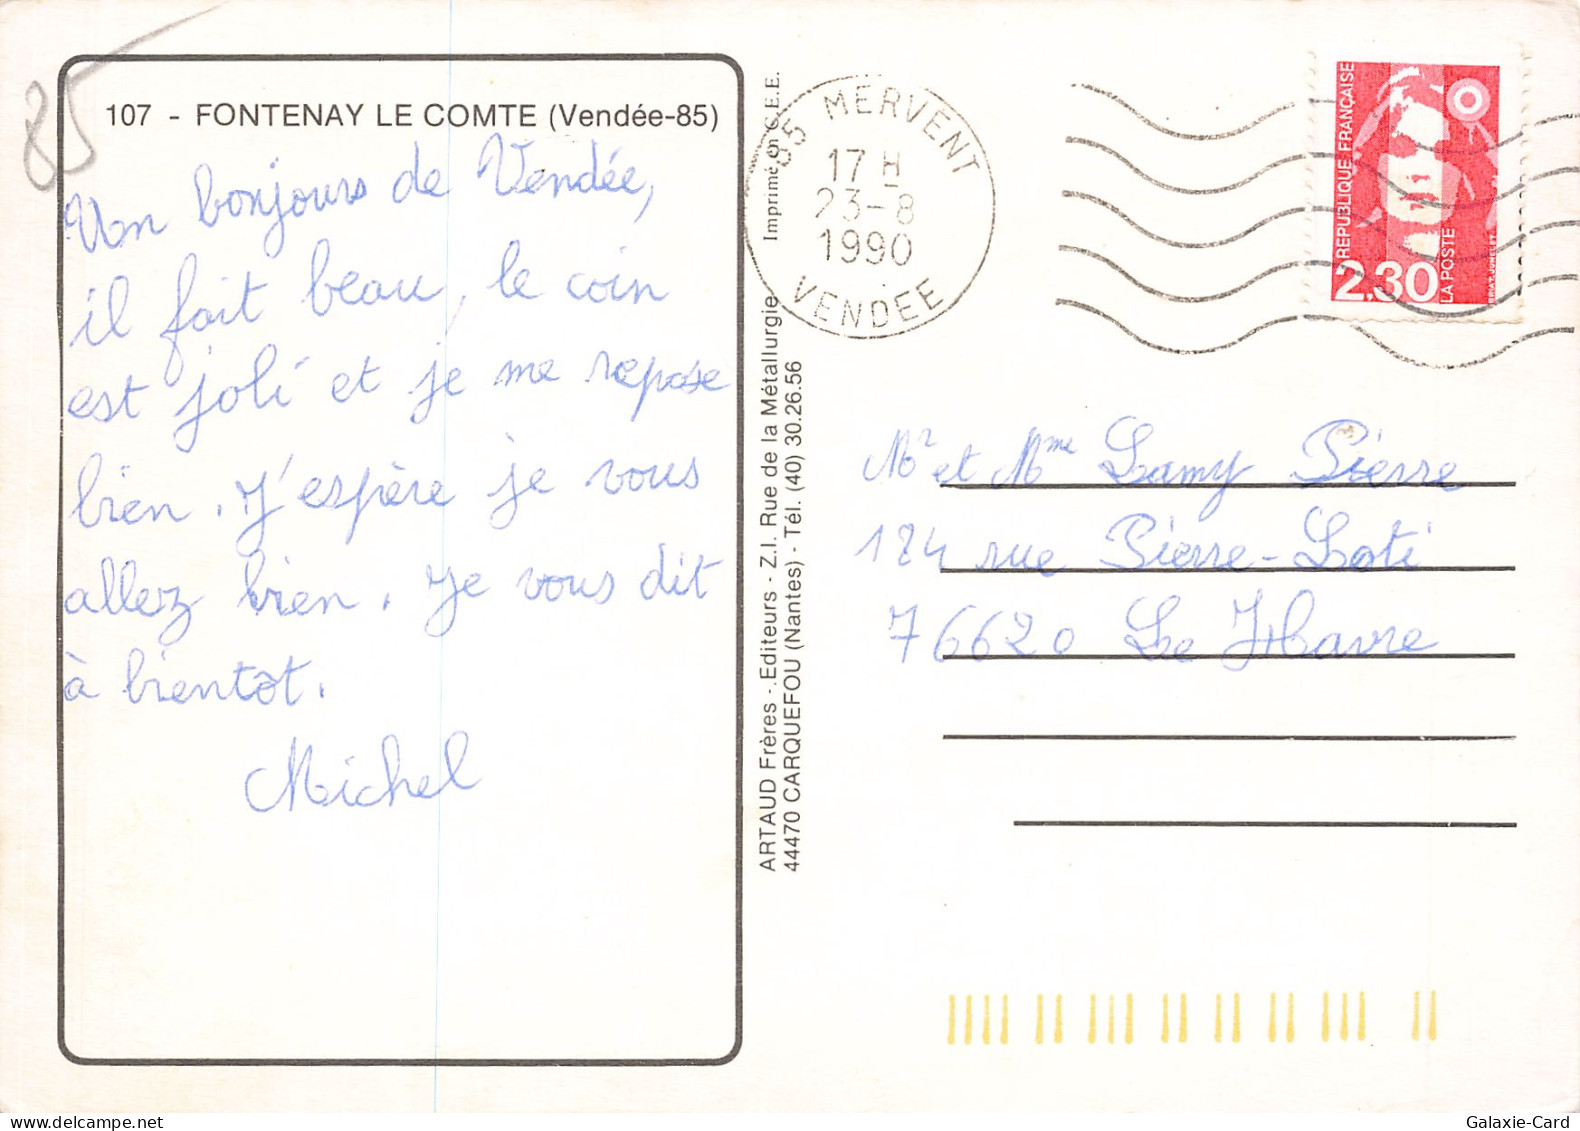 85
107 - FONTENAY LE COMTE (Vendée-85)
Un bonjours de Vendée,
il fait beau, le coin
est joli et je me repose
bien. J'espère je vous
allez bien. Je vous dit
à bientôt.
Michel
ARTAUD Frères - Editeurs - Z.I. Rue de la Métallurgie
44470 CARQUEFOU (Nantes) - Tél. (40) 30.26.56
Imprimé en C.E.E.
85 MERVENT
17 H
23-8
1990
VENDEE
REPUBLIQUE FRANÇAISE
2,30
LA POSTE
Mr et Mme Lamy Pierre
124 rue Pierre-Loti
76620 Le Havre
Galaxie-Card